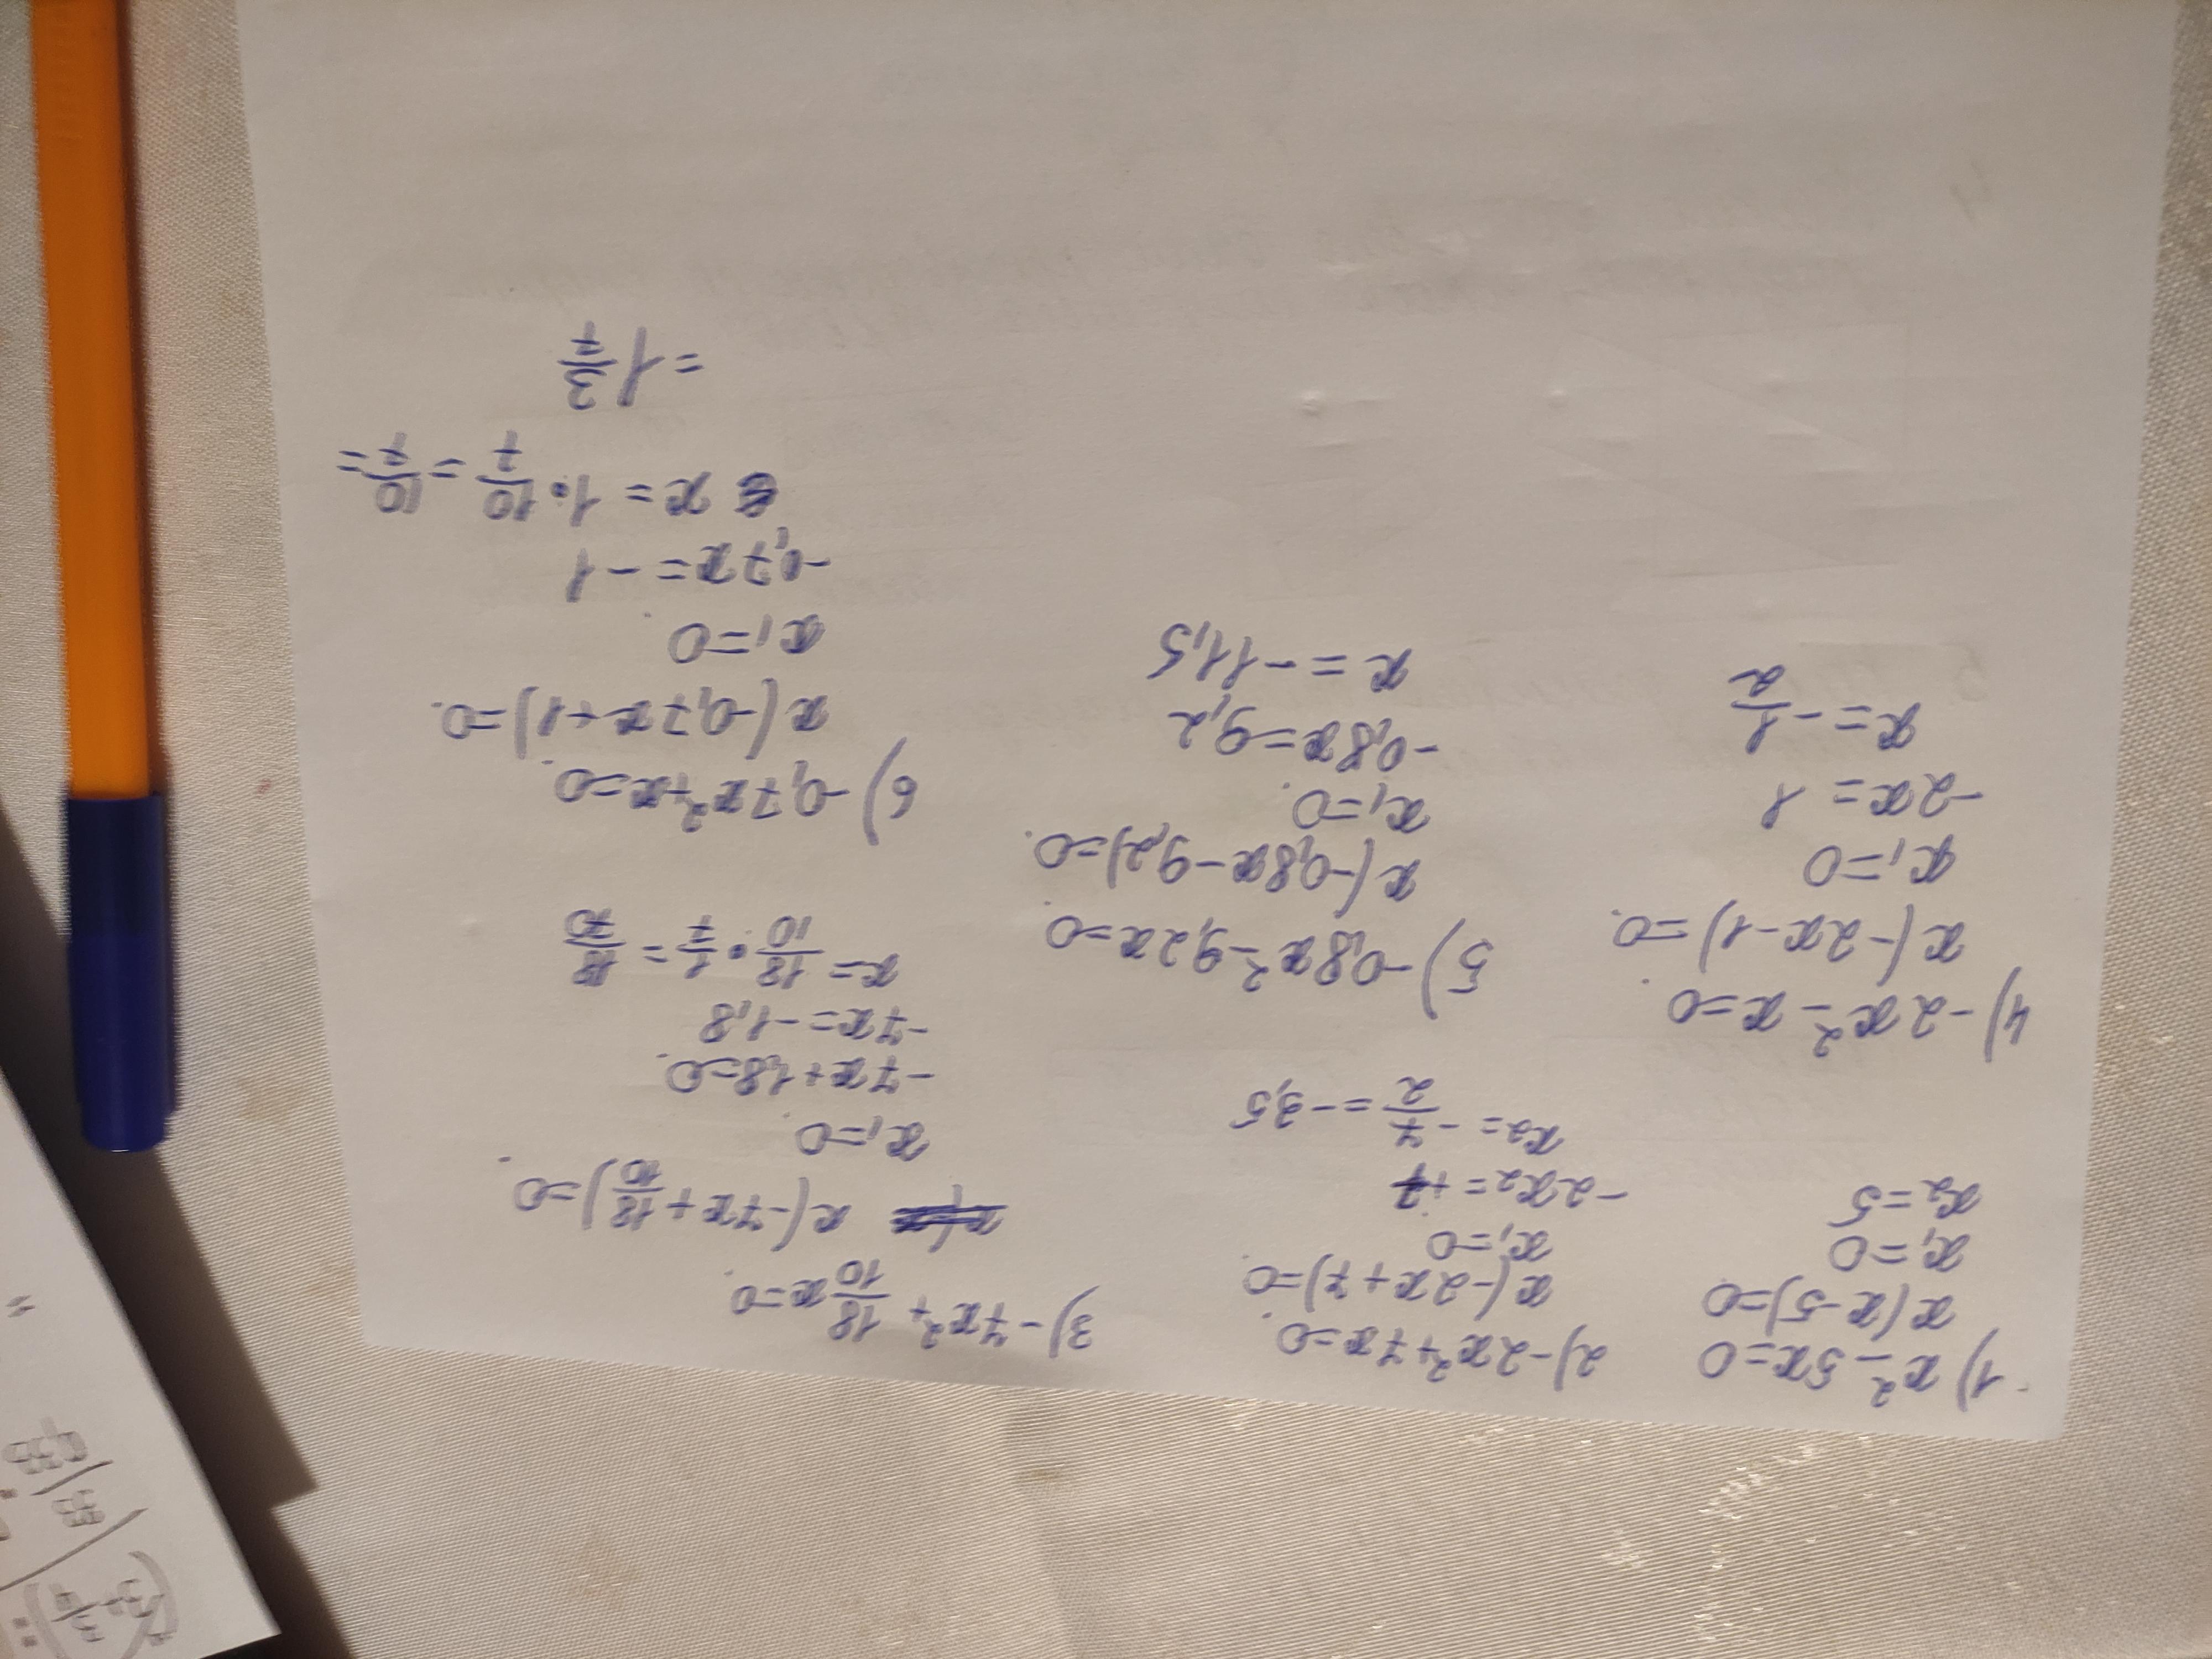 1) x² - 5x = 0
x(x - 5) = 0
x₁ = 0
x₂ = 5
2) -2x² + 7x = 0.
x(-2x + 7) = 0.
x₁ = 0
-2x₂ = +7
x₂ = -7/2 = -3,5
3) -7x² + 18/10 x = 0.
x(-7x + 18/10) = 0.
x₁ = 0.
-7x + 1,8 = 0.
-7x = -1,8
x = 18/10 · 1/7 = 18/70
4) -2x² - x = 0.
x(-2x - 1) = 0.
x₁ = 0
-2x = 1
x = -1/2
5) -0,8x² - 9,2x = 0.
x(-0,8x - 9,2) = 0.
x₁ = 0.
-0,8x = 9,2
x = -11,5
6) -0,7x² + x = 0.
x(-0,7x + 1) = 0.
x₁ = 0.
-0,7x = -1
x = 1 · 10/7 = 10/7 =
= 1 3/7